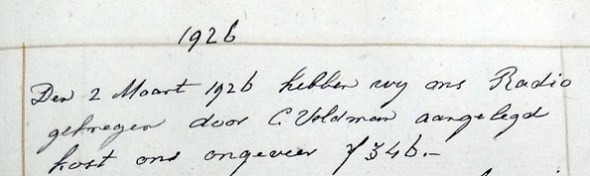 1926
Den 2 Maart 1926 hebben wy ons Radio
gekregen door C. Veldman aangelegd
kost ons ongeveer ƒ 346.-